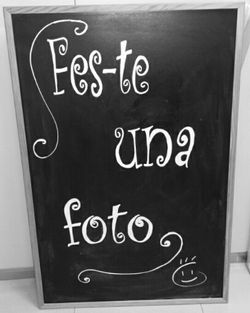 Fes-te
una
foto